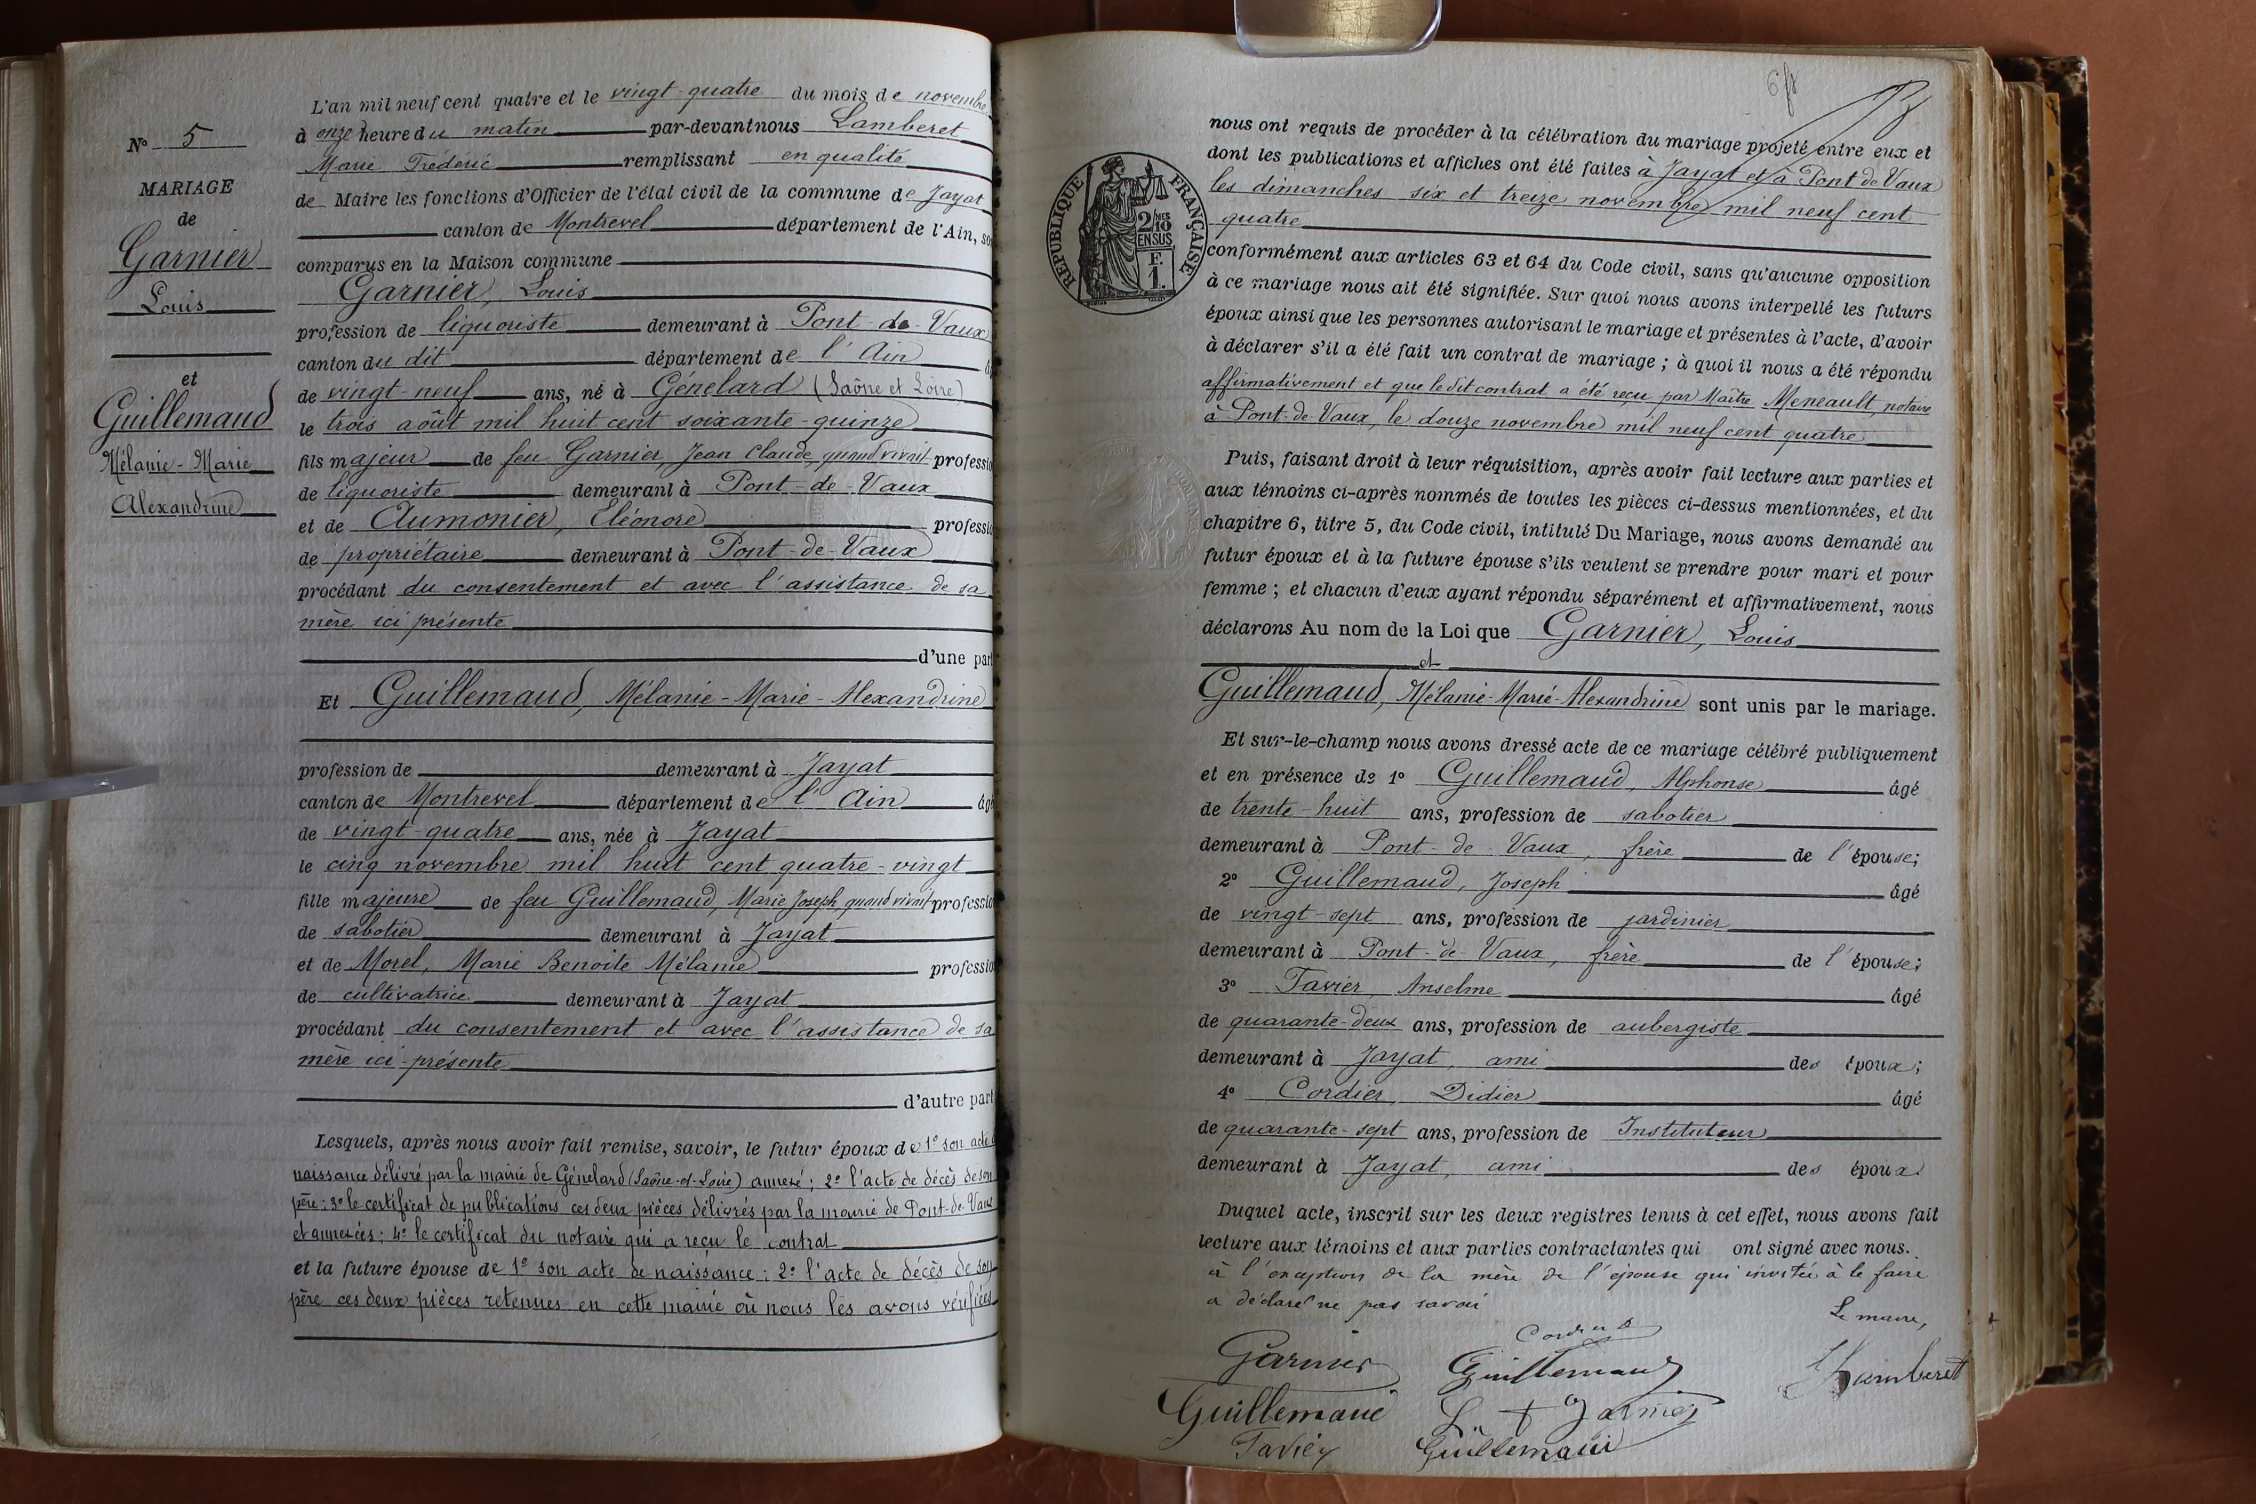 N° 5
MARIAGE
de
Garnier
Louis
et
Guillemaud
Mélanie-Marie
Alexandrine
L'an mil neuf cent quatre et le vingt-quatre du mois de novembre
à onze heure du matin par-devant nous Lamberet
Marie Frédéric remplissant en qualité
de Maire les fonctions d'Officier de l'état civil de la commune de Jayat
canton de Montrevel département de l'Ain, so
comparus en la Maison commune
Garnier, Louis
profession de liquoriste demeurant à Pont-de-Vaux
canton du dit département de l'Ain
de vingt-neuf ans, né à Génelard (Saône et Loire)
le trois août mil huit cent soixante-quinze
fils majeur de feu Garnier, Jean Claude, quand vivait professio
de liquoriste demeurant à Pont-de-Vaux
et de Aumonier, Eléonore professio
de propriétaire demeurant à Pont-de-Vaux
procédant du consentement et avec l'assistance de sa
mère ici présente
d'une part
Et Guillemaud, Mélanie-Marie-Alexandrine
profession de demeurant à Jayat
canton de Montrevel département de l'Ain âgé
de vingt-quatre ans, née à Jayat
le cinq novembre mil huit cent quatre-vingt
fille majeure de feu Guillemaud, Marie Joseph quand vivait professio
de sabotier demeurant à Jayat
et de Morel, Marie Benoite Mélanie professio
de cultivatrice demeurant à Jayat
procédant du consentement et avec l'assistance de sa
mère ici présente
d'autre part
Lesquels, après nous avoir fait remise, savoir, le futur époux de 1° son acte de
naissance délivré par la mairie de Génelard (Saône-et-Loire) annexé; 2° l'acte de décès de son
père; 3° le certificat de publications ces deux pièces délivrés par la mairie de Pont-de-Vaux
et annexées; 4° le certificat du notaire qui a reçu le contrat
et la future épouse de 1° son acte de naissance; 2° l'acte de décès de son
père ces deux pièces retenues en cette mairie où nous les avons vérifiées
RÉPUBLIQUE FRANÇAISE
2/10 MES
EN SUS
F.
1.
nous ont requis de procéder à la célébration du mariage projeté entre eux et
dont les publications et affiches ont été faites à Jayat et à Pont de Vaux
les dimanches six et treize novembre mil neuf cent
quatre
conformément aux articles 63 et 64 du Code civil, sans qu'aucune opposition
à ce mariage nous ait été signifiée. Sur quoi nous avons interpellé les futurs
époux ainsi que les personnes autorisant le mariage et présentes à l'acte, d'avoir
à déclarer s'il a été fait un contrat de mariage; à quoi il nous a été répondu
affirmativement et que le dit contrat a été reçu par Maître Meneault, notaire
à Pont-de-Vaux, le douze novembre mil neuf cent quatre
Puis, faisant droit à leur réquisition, après avoir fait lecture aux parties et
aux témoins ci-après nommés de toutes les pièces ci-dessus mentionnées, et du
chapitre 6, titre 5, du Code civil, intitulé Du Mariage, nous avons demandé au
futur époux et à la future épouse s'ils veulent se prendre pour mari et pour
femme; et chacun d'eux ayant répondu séparément et affirmativement, nous
déclarons Au nom de la Loi que Garnier, Louis
et
Guillemaud, Mélanie-Marie-Alexandrine sont unis par le mariage.
Et sur-le-champ nous avons dressé acte de ce mariage célébré publiquement
et en présence de 1° Guillemaud, Alphonse âgé
de trente-huit ans, profession de sabotier
demeurant à Pont-de-Vaux, frère de l'épouse;
2° Guillemaud, Joseph âgé
de vingt-sept ans, profession de jardinier
demeurant à Pont-de Vaux, frère de l'épouse;
3° Favier Anselme âgé
de quarante-deux ans, profession de aubergiste
demeurant à Jayat, ami des époux;
4° Cordier Didier âgé
de quarante-sept ans, profession de Instituteur
demeurant à Jayat, ami des époux
Duquel acte, inscrit sur les deux registres tenus à cet effet, nous avons fait
lecture aux témoins et aux parties contractantes qui ont signé avec nous.
à l'exception de la mère de l'épouse qui invitée à le faire
a déclaré ne pas savoir
Le maire,
Cordier D
Garnier Guillemaud Lamberet
Guillemaud Garnier
Favier Guillemaud